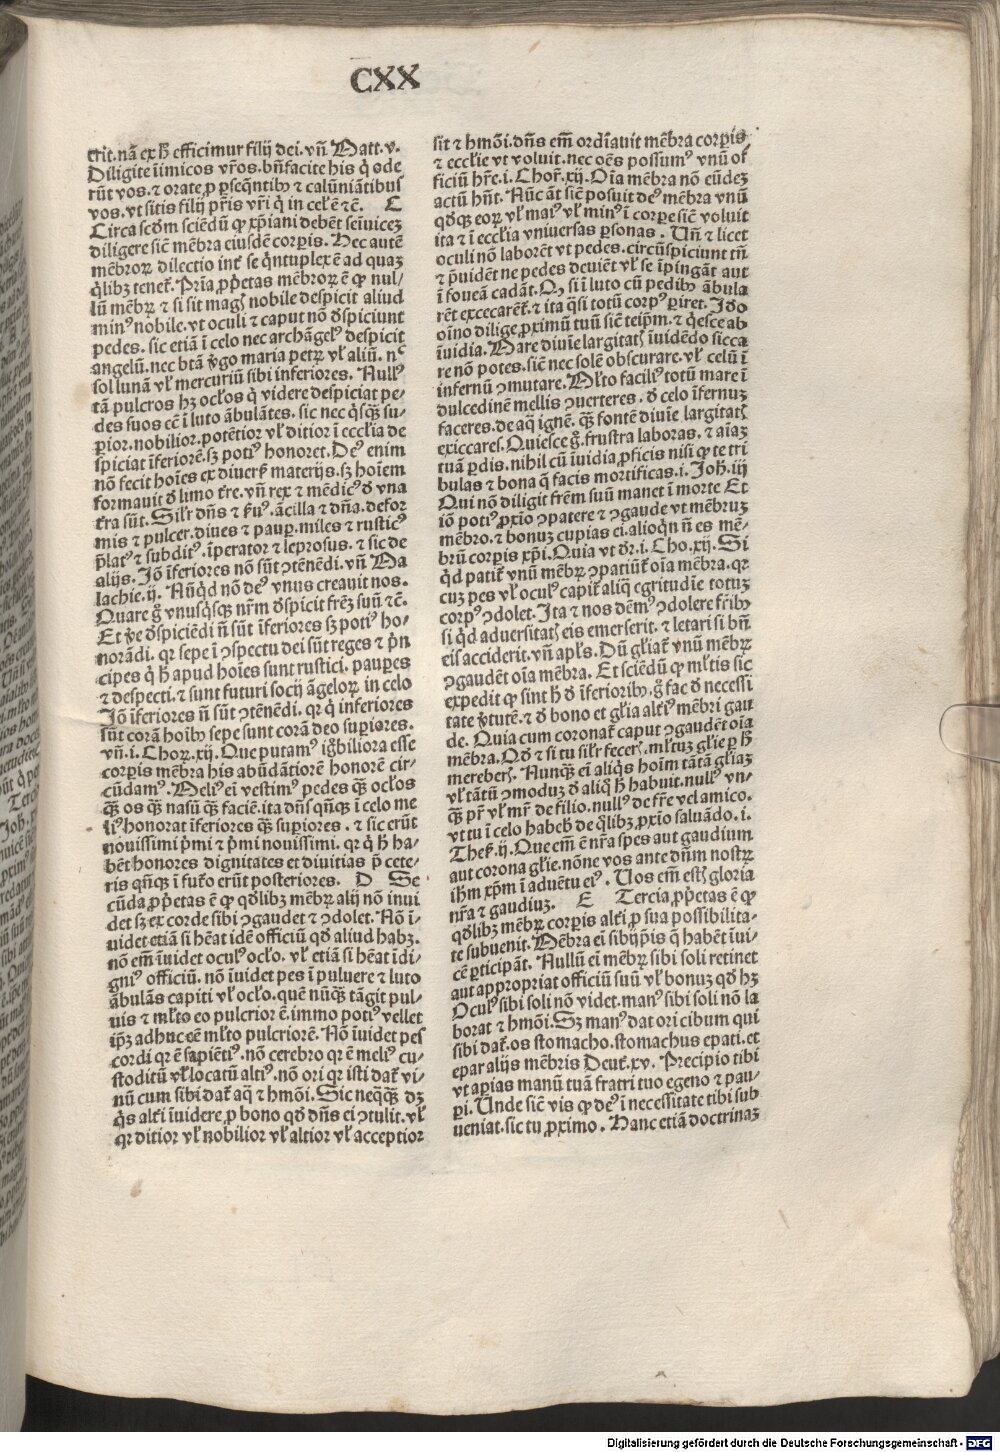 CXX
erit. nā ex hͦ efficimur filij dei. vñ Matt. v.
Diligite īimicos vr̄os. bn̄facite his q̇ ode
rūt vos. ⁊ orate ꝓ ꝑseq̄ntibꝰ ⁊ calūniātibus
vos. vt sitis filij pr̄is vr̄i q̇ in cel̄ ē ⁊c̄. C
Circa scd̄m sciēdū ꝙ xp̄iani debēt seīuicez
diligere sic̄ mēbra eiusdē corꝑis. Hec autē
mēbroꝝ dilectio int̄ se q̄ntuplex ē ad quaꝫ
q̇libꝫ tenet̄. Pr̄ia ꝓp̄etas mēbroꝝ ē ꝙ nul-
lū mēbꝝ ⁊ si sit magꝭ nobile despicit aliud
minꝰ nobile. vt oculi ⁊ caput nō dʼspiciunt
pedes. sic etiā ī celo nec archāgelꝰ despicit
angelū. nec btā v̇go maria petꝝ vl̓ aliū. nͨ
sol lunā vl̓ mercuriū sibi inferiores. Nullꝰ
tā pulcros hꝫ ocl̓os q̇ videre despiciat pe-
des suos cē ī luto ābulātes. sic nec q̇sꝗ̄ su-
ꝑior. nobilior. potētior vl̓ ditior ī eccl̓ia de
spiciat īferiorē. sꝫ potiꝰ honoret. Deꝰ enim
nō fecit hoīes ex diuersꝭ materijs. sꝫ hoīem
formauit dʼ limo tr̄e. vñ rex ⁊ mēdicꝰ dʼ vna
tr̄a sūt. Sil̓r dn̄s ⁊ ẜuꝰ. ācilla ⁊ dn̄a. defor
mis ⁊ pulcer. diues ⁊ pauꝑ. miles ⁊ rusticꝰ
p̄latꝰ ⁊ subditꝰ. īperator ⁊ leprosus. ⁊ sic de
alijs. Iō īferiores nō sūt ꝯtēnēdi. vñ Ma
lachie. ij. Nūq̇d nō deꝰ vnus creauit nos.
Quare gͦ vnusq̇sꝗ nr̄m dʼspicit fr̄eꝫ suū ⁊c̄.
Et v̓e dʼspiciēdi n̄ sūt īferiores sꝫ potiꝰ ho-
norādi. qꝛ sepe ī ꝯspectu dei sūt reges ⁊ p̄n
cipes q̇ hͦ apud hoīes sunt rustici. pauꝑes
⁊ despecti. ⁊ sunt futuri socij āgeloꝝ in celo
Iō īferiores n̄ sūt ꝯtēnēdi. qꝛ q̇ inferiores
sūt corā hoībꝰ sepe sunt corā deo suꝑiores.
vñ. i. Choꝝ. xij. Que putamꝰ ig̓biliora esse
corꝑis mēbra his abūdātiorē honorē cir-
cūdamꝰ. Meliꝰ ei̓ vestimꝰ pedes ꝗ̄ ocl̓os
ꝗ̄ os ꝗ̄ nasū ꝗ̄ faciē. ita dn̄s qn̄ꝗ ī celo me
liꝰ honorat īferiores ꝗ̄ suꝑiores. ⁊ sic erūt
nouissimi p̓mi ⁊ p̓mi nouissimi. qꝛ q̇ hͦ ha-
bēt honores dignitates ⁊ diuitias p̄ cete-
ris qn̄ꝗ ī futͦo erūt posteriores. D Se
cūda ꝓp̄etas ē ꝙ qd̓libꝫ mēbꝝ alij nō inui
det sꝫ ex corde sibi ꝯgaudet ⁊ ꝯdolet. Nō ī-
uidet etiā si hēat idē officiū qd̓ aliud habꝫ.
nō em̄ īuidet oculꝰ ocl̓o. vl̓ etiā si hēat īdi-
gniꝰ officiū. nō īuidet pes ī puluere ⁊ luto
ābulās capiti vl̓ ocl̓o. quē nūꝗ̄ tāgit pul-
uis ⁊ ml̓to eo pulcrior ē. immo potiꝰ vellet
ip̄ꝫ adhuc eē ml̓to pulcriorē. Nō īuidet pes
cordi qꝛ ē sapiētiꝰ. nō cerebro qꝛ ē meliꝰ cu-
stoditū vl̓ locatū altiꝰ. nō ori qꝛ isti dat̄ vi-
nū cum sibi dat̄ aq̄ ⁊ hmōi. Sic neqꝗ̄ dꝫ
q̇s alt̄i īuidere ꝓ bono qd̓ dn̄s ei ꝯtulit. vl̓
qꝛ ditior vl̓ nobilior vl̓ altior vl̓ acceptior
sit ⁊ hmōi. dn̄s em̄ ordīauit mēbra corꝑis
⁊ eccl̓ie vt voluit. nec oēs possumꝰ vnū of
ficiū hr̄e. i. Chor. xij. Oīa mēbra nō eūdeꝫ
actū hn̄t. Nūc āt sic̄ posuit deꝰ mēbra vnū
qd̓ꝗ eoꝝ vl̓ maiꝰ vl̓ minꝰ ī corꝑe sic̄ voluit
ita ⁊ ī eccl̓ia vniuersas ꝑsonas. Vñ ⁊ licet
oculi nō laborēt vt pedes. circūspiciunt tn̄
⁊ p̓uidēt ne pedes deuiēt vl̓ se īpingāt aut
ī foueā cadāt. Qꝫ si ī luto cū pedibꝰ ābula
rēt excecarēt̄. ⁊ ita q̄si totū corpꝰ ꝑiret. Iḋo
oīno dilige ꝓximū tuū sic̄ teip̄m. ⁊ q̇esce ab
īuidia. Mare diuīe largitatꝭ īuidēdo sicca
re nō potes. sic̄ nec solē obscurare. vl̓ celū ī
infernū ꝯmutare. Ml̓to faciliꝰ totū mare ī
dulcedinē mellis ꝯuerteres. dʼ celo īfernuꝫ
faceres. de aq̄ ignē. ꝗ̄ fontē diuīe largitatꝭ
exiccares. Quiesce gͦ. frustra laboras. ⁊ aīaꝫ
tuā ꝑdis. nihil cū īuidia ꝓficis nisi ꝙ te tri
bulas ⁊ bona q̄ facis mortificas. i. Joh̄. iij
Qui nō diligit fr̄em suū manet ī morte Et
iō potiꝰ ꝓxīo ꝯpatere ⁊ ꝯgaude vt mēbruꝫ
mēbro. ⁊ bonuꝫ cupias ei. alioq̇n n̄ es mē-
brū corꝑis xp̄i. Quia vt dr̄. i. Cho. xij. Si
q̇d patit̄ vnū mēbꝝ ꝯpatiūt̄ oīa mēbra. qꝛ
cuꝫ pes vl̓ oculꝰ capit̄ aliq̄ egritudīe totuꝫ
corpꝰ ꝯdolet. Ita ⁊ nos dēmꝰ ꝯdolere fr̄ibꝰ
si q̇d aduersitatꝭ eis emerserit. ⁊ letari si bn̄
eis acciderit. vñ apl̓s. Dū gl̓iat̄ vnū mēbꝝ
ꝯgaudēt oīa mēbra. Et sciēdū ꝙ ml̓tis sic
expedit ꝙ sint hͦ dʼ īferioribꝰ. gͦ fac dʼ necessi
tate v̓tutē. ⁊ dʼ bono et gl̓ia altiꝰ mēbri gau
de. Quia cum coronat̄ caput ꝯgaudēt oīa
mēbra. Qd̓ ⁊ si tu sil̓r fecerꝭ. ml̓tuꝫ gl̓ie ꝑ hͦ
merebeꝭ. Nunꝗ̄ ei̓ aliq̇s hoīm tātā gl̓iaꝫ
vl̓ tātū ꝯmoduꝫ dʼ aliq̇ hͦ habuit. nullꝰ vn-
ꝗ̄ pr̄ vl̓ mr̄ de filio. nullꝰ de fr̄e vel amico.
vt tu ī celo habeb̓ de q̇libꝫ ꝓxīo saluādo. i.
Thesꝭ. ij. Que em̄ ē nr̄a spes aut gaudium
aut corona gl̓ie. nōne vos ante dn̄m nostꝝ
ih̄m xp̄m ī aduētu eiꝰ. Uos em̄ estꝭ gloria
nr̄a ⁊ gaudiuꝫ. E Tercia ꝓp̄etas ē ꝙ
qd̓libꝫ mēbꝝ corꝑis alt̄i ꝓ sua possibilita-
te subuenit. Mēbra ei̓ sibijp̄is q̄ habēt īui-
cē ꝑticipāt. Nullū ei̓ mēbꝝ sibi soli retinet
aut appropriat officiū suū vl̓ bonuꝫ qd̓ hꝫ
Oculꝰ sibi soli nō videt. manꝰ sibi soli nō la
borat ⁊ hmōi. Sꝫ manꝰ dat ori cibum qui
sibi dat̄. os stomacho. stomachus epati. et
epar alijs mēbris Deut̄. xv. Precipio tibi
vt aꝑias manū tuā fratri tuo egeno ⁊ pau-
ꝑi. Unde sic̄ vis ꝙ deꝰ ī necessitate tibi sub
ueniat. sic tu ꝓximo. Hanc etiā doctrinaꝫ
Digitalisierung gefördert durch die Deutsche Forschungsgemeinschaft - DFG